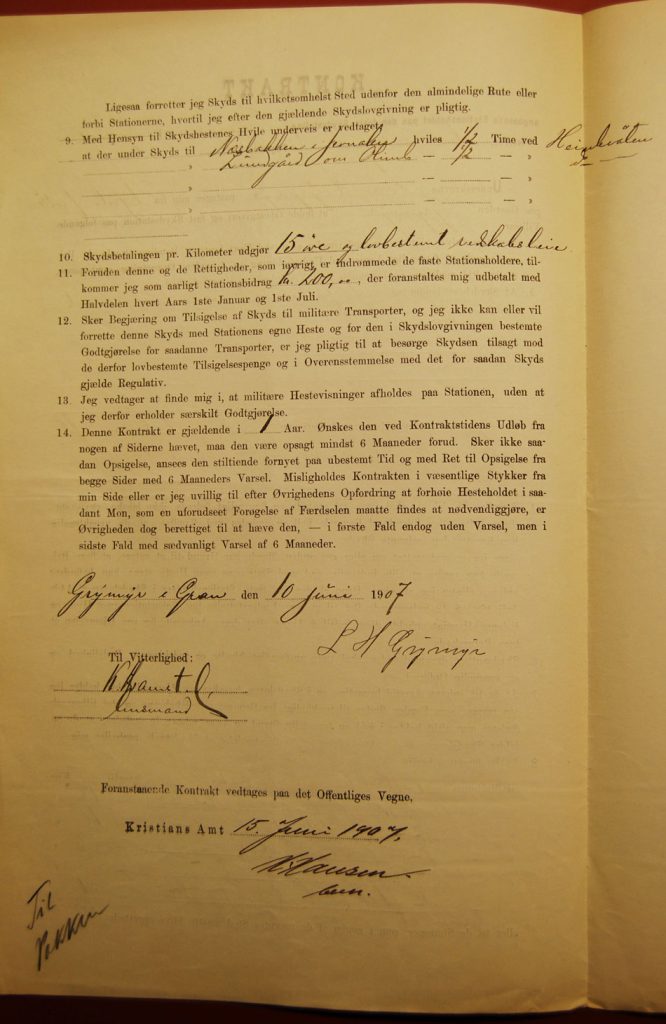 Ligesaa forretter jeg Skyds til hvilketsomhelst Sted udenfor den almindelige Rute eller
forbi Stationerne, hvortil jeg efter den gjældende Skydslovgivning er pligtig.
9. Med Hensyn til Skydshestenes Hvile underveis er vedtaget
at der under Skyds til Næsbakken i hviles 1/2 Time ved
" Lundgård om — 1/2 — "
"
"
10. Skydsbetalingen pr. Kilometer udgjør 15 øre og lovbestemt redskabsleie
11. Foruden denne og de Rettigheder, som iøvrigt er indrømmede de faste Stationsholdere, til-
kommer jeg som aarligt Stationsbidrag kr. 200,00, der foranstaltes mig udbetalt med
Halvdelen hvert Aars 1ste Januar og 1ste Juli.
12. Sker Begjæring om Tilsigelse af Skyds til militære Transporter, og jeg ikke kan eller vil
forrette denne Skyds med Stationens egne Heste og for den i Skydslovgivningen bestemte
Godtgjørelse for saadanne Transporter, er jeg pligtig til at besørge Skydsen tilsagt mod
de derfor lovbestemte Tilsigelsespenge og i Overensstemmelse med det for saadan Skyds
gjælde Regulativ.
13. Jeg vedtager at finde mig i, at militære Hestevisninger afholdes paa Stationen, uden at
jeg derfor erholder særskilt Godtgjørelse.
14. Denne Kontrakt er gjældende i 1 Aar. Ønskes den ved Kontraktstidens Udløb fra
nogen af Siderne hævet, maa den være opsagt mindst 6 Maaneder forud. Sker ikke saa-
dan Opsigelse, ansees den stiltiende fornyet paa ubestemt Tid og med Ret til Opsigelse fra
begge Sider med 6 Maaneders Varsel. Misligholdes Kontrakten i væsentlige Stykker fra
min Side eller er jeg uvillig til efter Øvrighedens Opfordring at forhøie Hesteholdet i saa-
dant Mon, som en uforudseet Forøgelse af Færdselen maatte findes at nødvendiggjøre, er
Øvrigheden dog berettiget til at hæve den, — i første Fald endog uden Varsel, men i
sidste Fald med sædvanligt Varsel af 6 Maaneder.
Grymyr i Gran den 10 juni 1907
L H Grymyr
Til Vitterlighed:
lensmand
Foranstaaende Kontrakt vedtages paa det Offentliges Vegne,
Kristians Amt 15. Juni 1907.
Hansen
Til